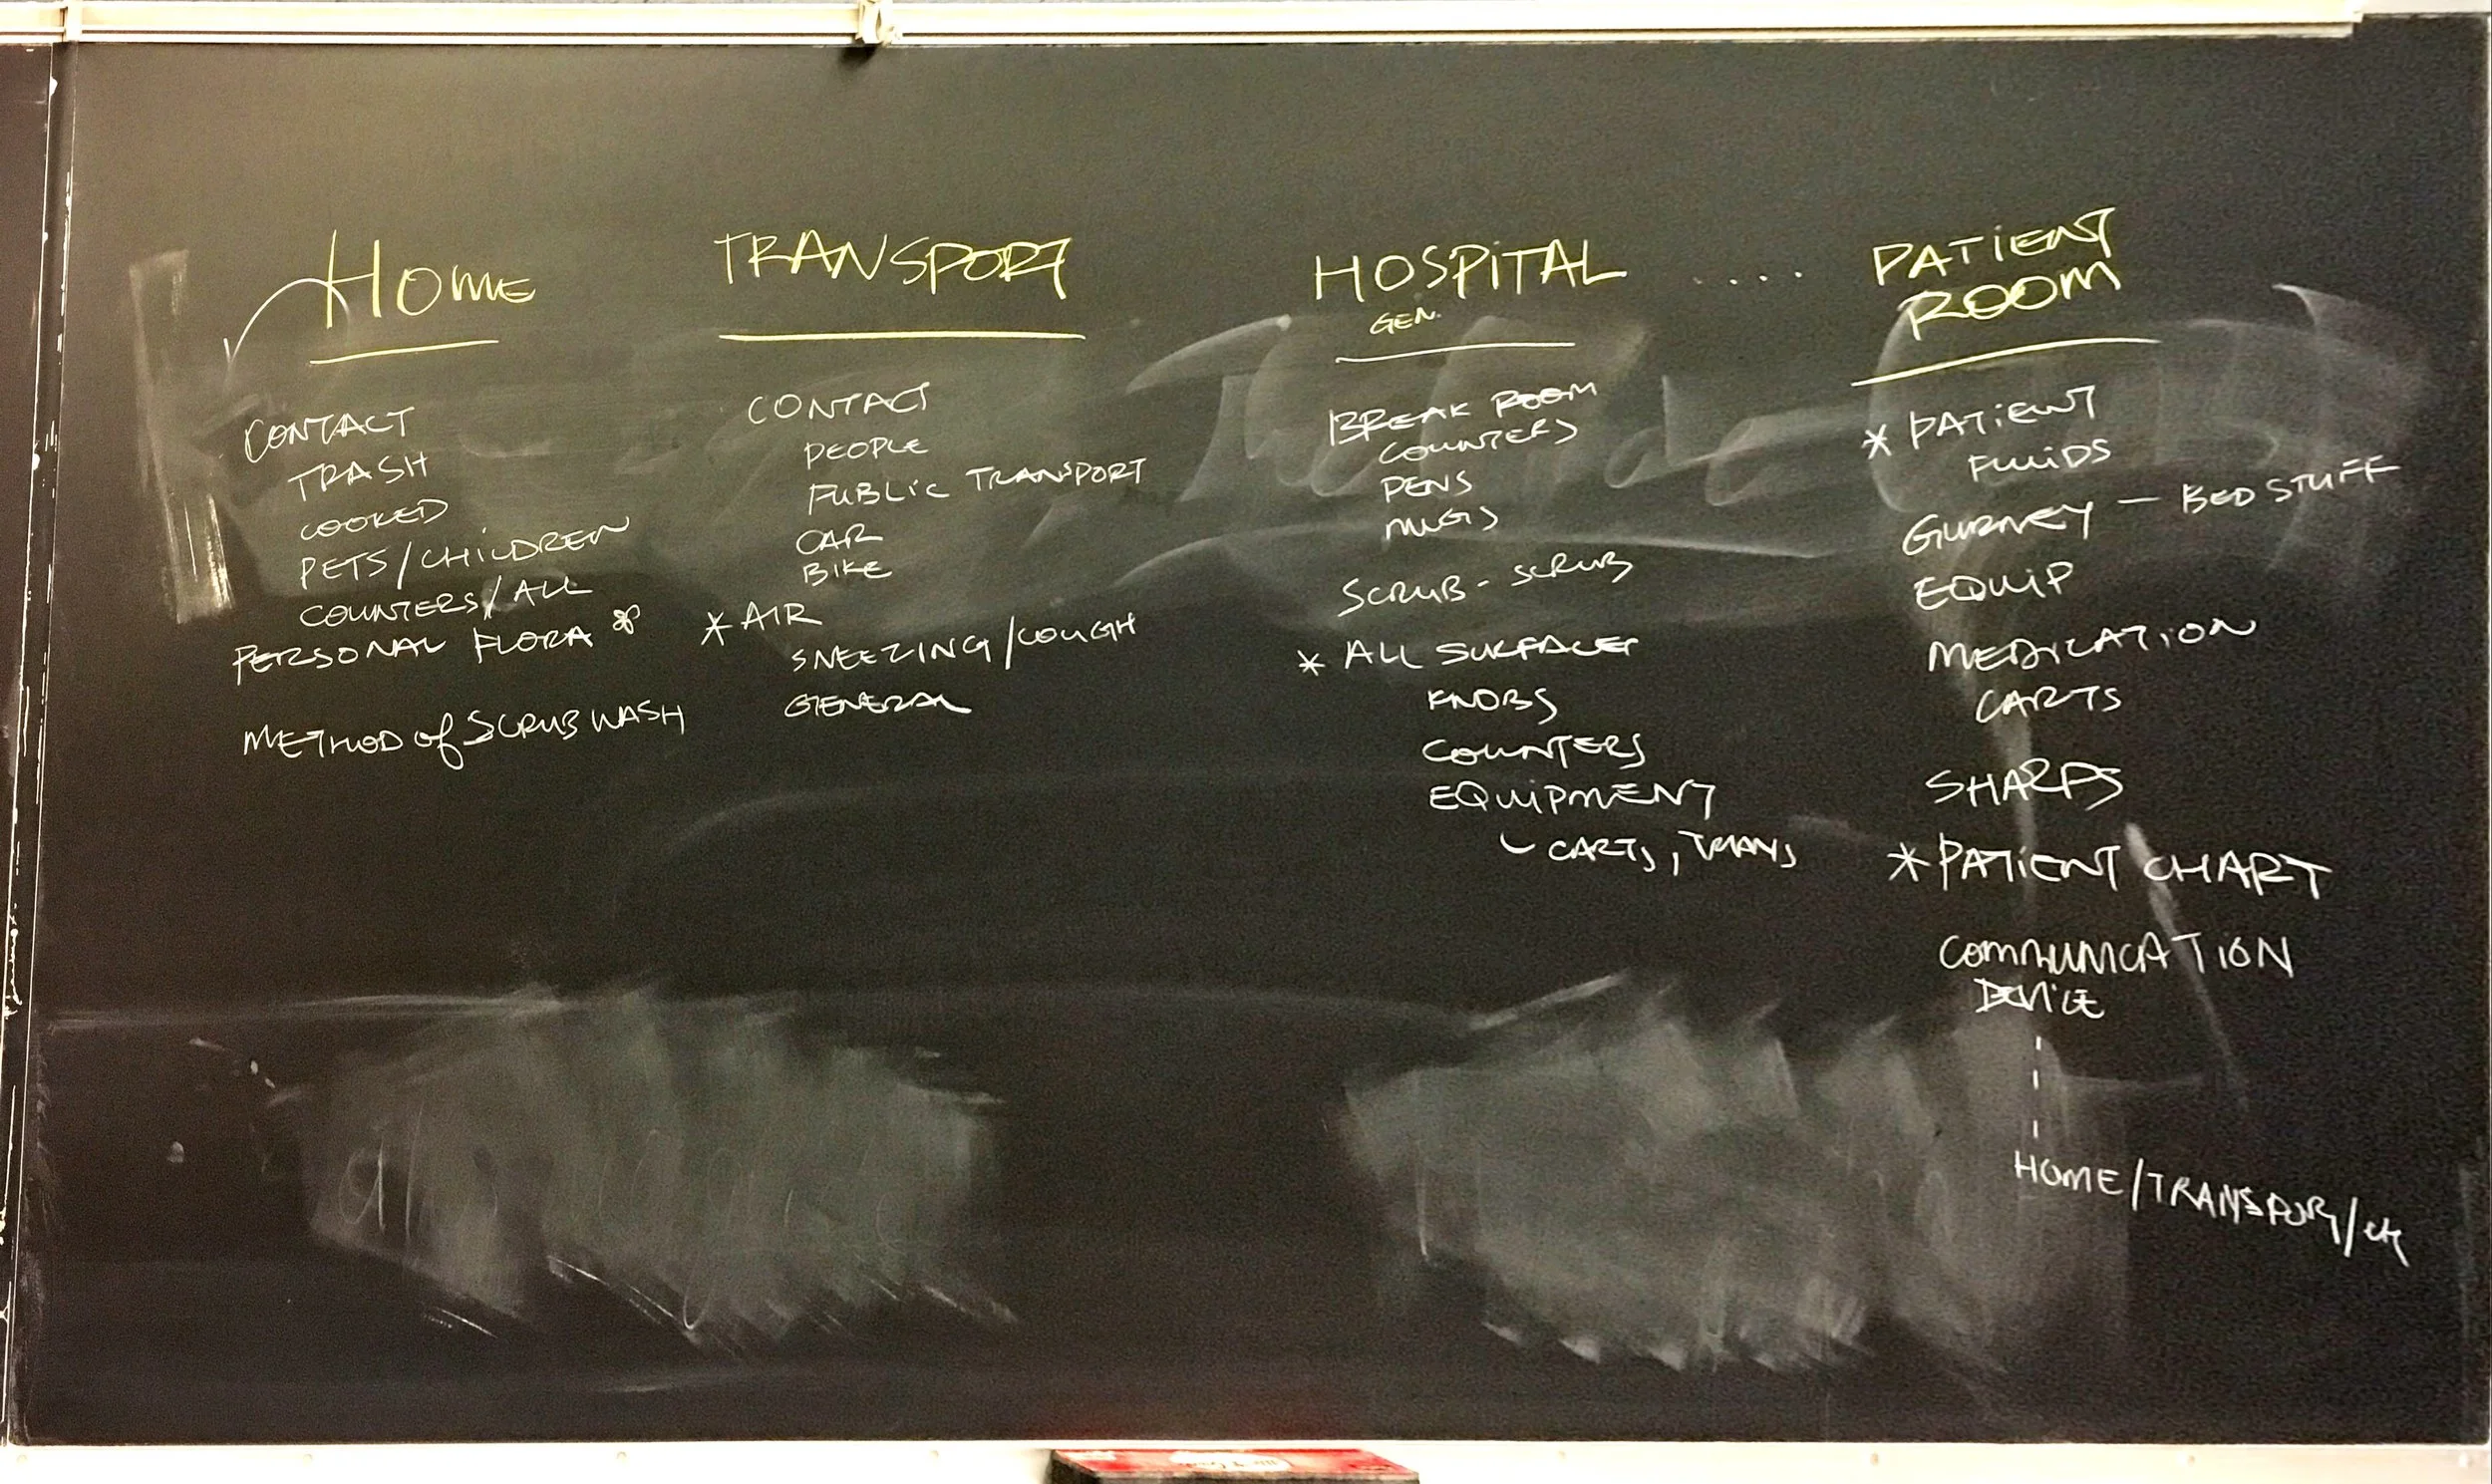 HOME
CONTACT
TRASH
COOKED
PETS/CHILDREN
COUNTERS/ALL
PERSONAL FLORA *
METHOD of SCRUB WASH
TRANSPORT
CONTACT
PEOPLE
PUBLIC TRANSPORT
CAR
BIKE
* AIR
SNEEZING/COUGH
GENERAL
HOSPITAL ....
GEN.
BREAK ROOM
COUNTERS
PENS
MUGS
SCRUB - SCRUB
* ALL SURFACES
KNOBS
COUNTERS
EQUIPMENT
CARTS, TRAYS
PATIENT
ROOM
* PATIENT
FLUIDS
GURNEY - BED STUFF
EQUIP
MEDICATION
CARTS
SHARPS
* PATIENT CHART
COMMUNICATION
DEVICE
HOME/TRANSPORT/etc